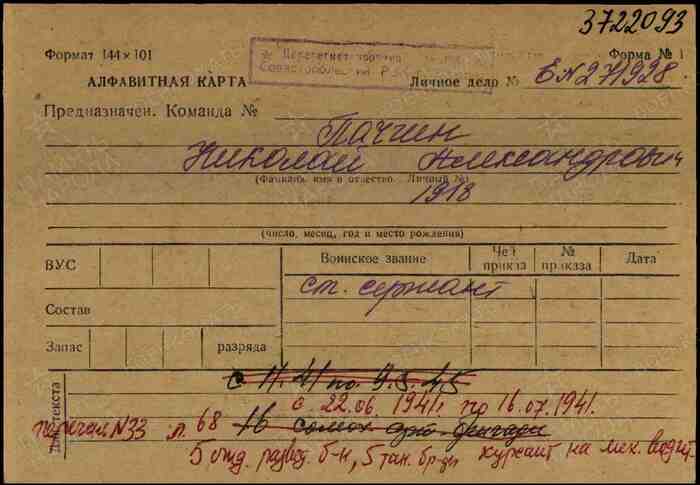 3722093
Формат 144×101
Форма № 1
АЛФАВИТНАЯ КАРТА
Личное дело № EN 271928
Предназначен. Команда №
Пачгин
Николай Александрович
(Фамилия, имя и отчество. Личный №)
1918
(число, месяц, год и место рождения)
ВУС
Воинское звание
Чей приказ
№ приказа
Дата
ст. сержант
Состав
Запас
разряда
с 11.41 по 9.5.45
с 22.06. 1941г. по 16.07.1941.
N33 л. 68 16
Для текста
5 отд. развед. б-н, 5 тан. бр-ды курсант на мех. водит.